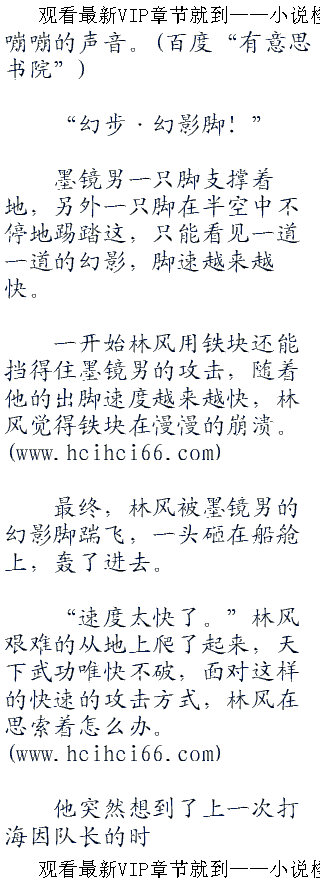 观看最新VIP章节就到——小说
嘣嘣的声音。(百度“有意思
书院”)
“幻步·幻影脚！”
墨镜男一只脚支撑着
地，另外一只脚在半空中不
停地踢踏这，只能看见一道
一道的幻影，脚速越来越
快。
一开始林风用铁块还能
挡得住墨镜男的攻击，随着
他的出脚速度越来越快，林
风觉得铁块在慢慢的崩溃。
(www.hcihci66.com)
最终，林风被墨镜男的
幻影脚踹飞，一头砸在船舱
上，轰了进去。
“速度太快了。”林风
艰难的从地上爬了起来，天
下武功唯快不破，面对这样
的快速的攻击方式，林风在
思索着怎么办。
(www.hcihci66.com)
他突然想到了上一次打
海因队长的时
观看最新VIP章节就到——小说